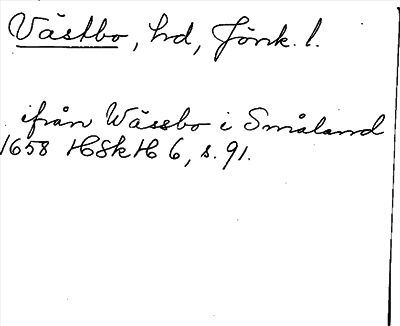 Västbo, hd, Jönk. l.
ifrån Wässbo i Småland
1658 HSkH 6, s. 91.